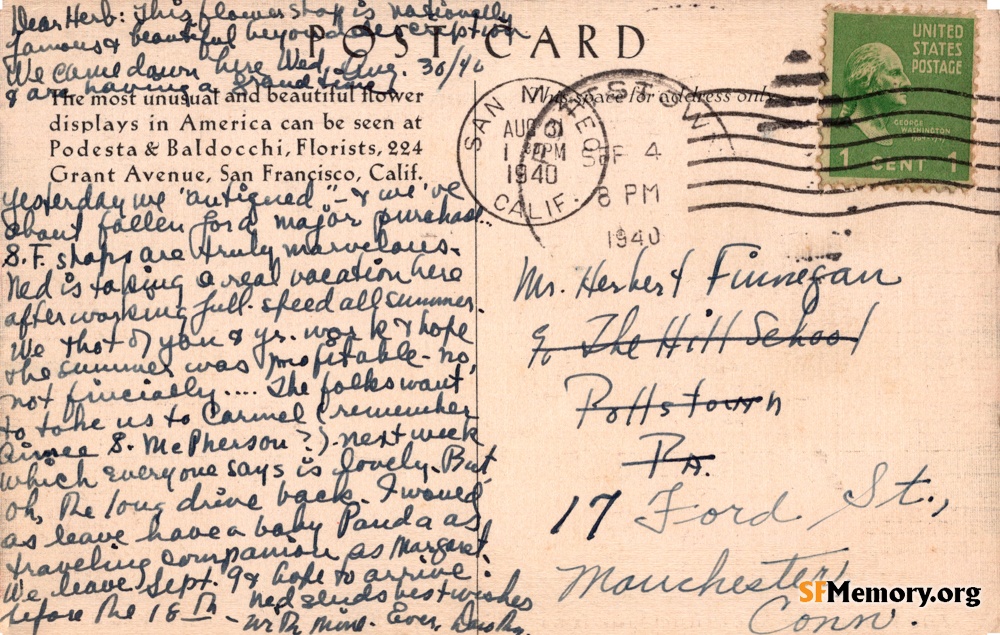 Dear Herb: This flower shop is nationally
famous & beautiful beyond description
POST CARD
We came down here Wed, Aug. 30/40
& are having a grand time.
The most unusual and beautiful flower
displays in America can be seen at
Podesta & Baldocchi, Florists, 224
Grant Avenue, San Francisco, Calif.
This space for address only
yesterday we "antiqued" - & we've
about fallen for a major purchase.
S.F. shops are truly marvelous.
Ned is taking a real vacation here
after working full speed all summer.
We tho't of you & yr. work & hope
the summer was profitable - no,
not fincially.... The folks want
to take us to Carmel (remember
Aimee S. McPherson?) next week
which everyone says is lovely. But
oh, the long drive back. I would
as leave have a baby Panda as
traveling companion as Margaret.
We leave Sept. 9 & hope to arrive
before the 18th - Ned sends best wishes
with mine. Ever, Dorothy
SAN MATEO
AUG 31
1 PM
1940
CALIF.
SEP 4
8 PM
1940
UNITED
STATES
POSTAGE
GEORGE
WASHINGTON
1 CENT 1
Mr. Herbert Finnegan
c/o The Hill School
Pottstown
PA.
17 Ford St.,
Manchester
Conn.
SFMemory.org